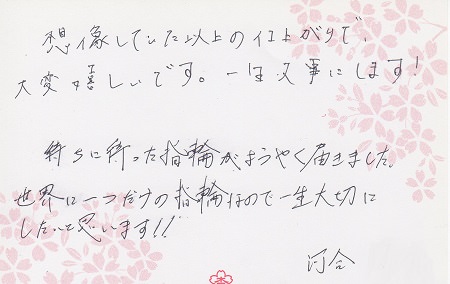 想像していた以上の仕上がりで、
大変嬉しいです。一生大事にします!
待ちに待った指輪がようやく届きました。
世界に一つだけの指輪なので一生大切に
したいと思います!!
河合